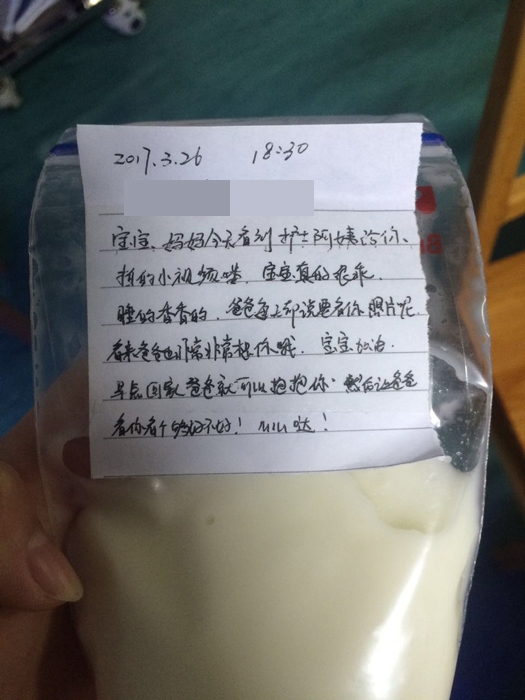 2017.3.26 18:30
宝宝、妈妈今天看到护士阿姨给你、
拍的小视频喽、宝宝真的很乖、
睡的香香的、爸爸每上都说要看你照片呢
看来爸爸也非常非常想你哦、宝宝加油、
早点回家爸爸就可以抱抱你、然后让爸爸
看你看个够好不好! MIU哒!